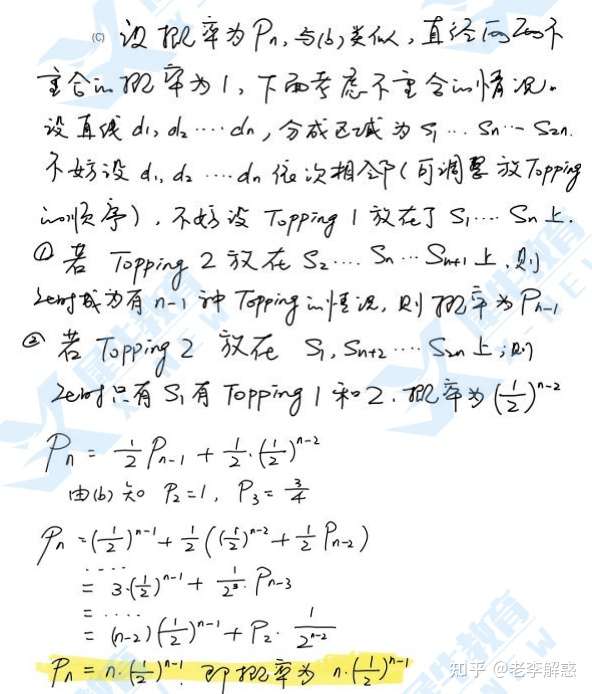 (c) 设概率为Pn,与(b)类似,直径两两不
重合的概率为1,下面考虑不重合的情况。
设直线d₁,d₂⋯⋯dn,分成区域为S₁⋯Sn⋯S₂n.
不妨设d₁,d₂⋯⋯dn依次相邻(可调整放Topping
的顺序),不妨设Topping 1放在了S₁⋯⋯Sn上.
① 若Topping 2放在S₂⋯⋯Sn⋯Sn+1上,则
此时成为有n-1种Topping的情况,则概率为Pn-1
② 若Topping 2 放在 S₁,Sn+2⋯⋯S₂n上,则
此时只有S₁有Topping 1和2.概率为(1/2)^(n-2)
Pn = 1/2 Pn-1 + 1/2·(1/2)^(n-2)
由(b)知 P₂=1, P₃=3/4
Pn = (1/2)^(n-1) + 1/2((1/2)^(n-2) + 1/2 Pn-2)
⋯⋯
= 3·(1/2)^(n-1) + 1/2³·Pn-3
= ⋯⋯
= (n-2)(1/2)^(n-1) + P₂·1/2^(n-2)
Pn = n·(1/2)^(n-1). 即概率为 n·(1/2)^(n-1)
知乎 @老李解惑